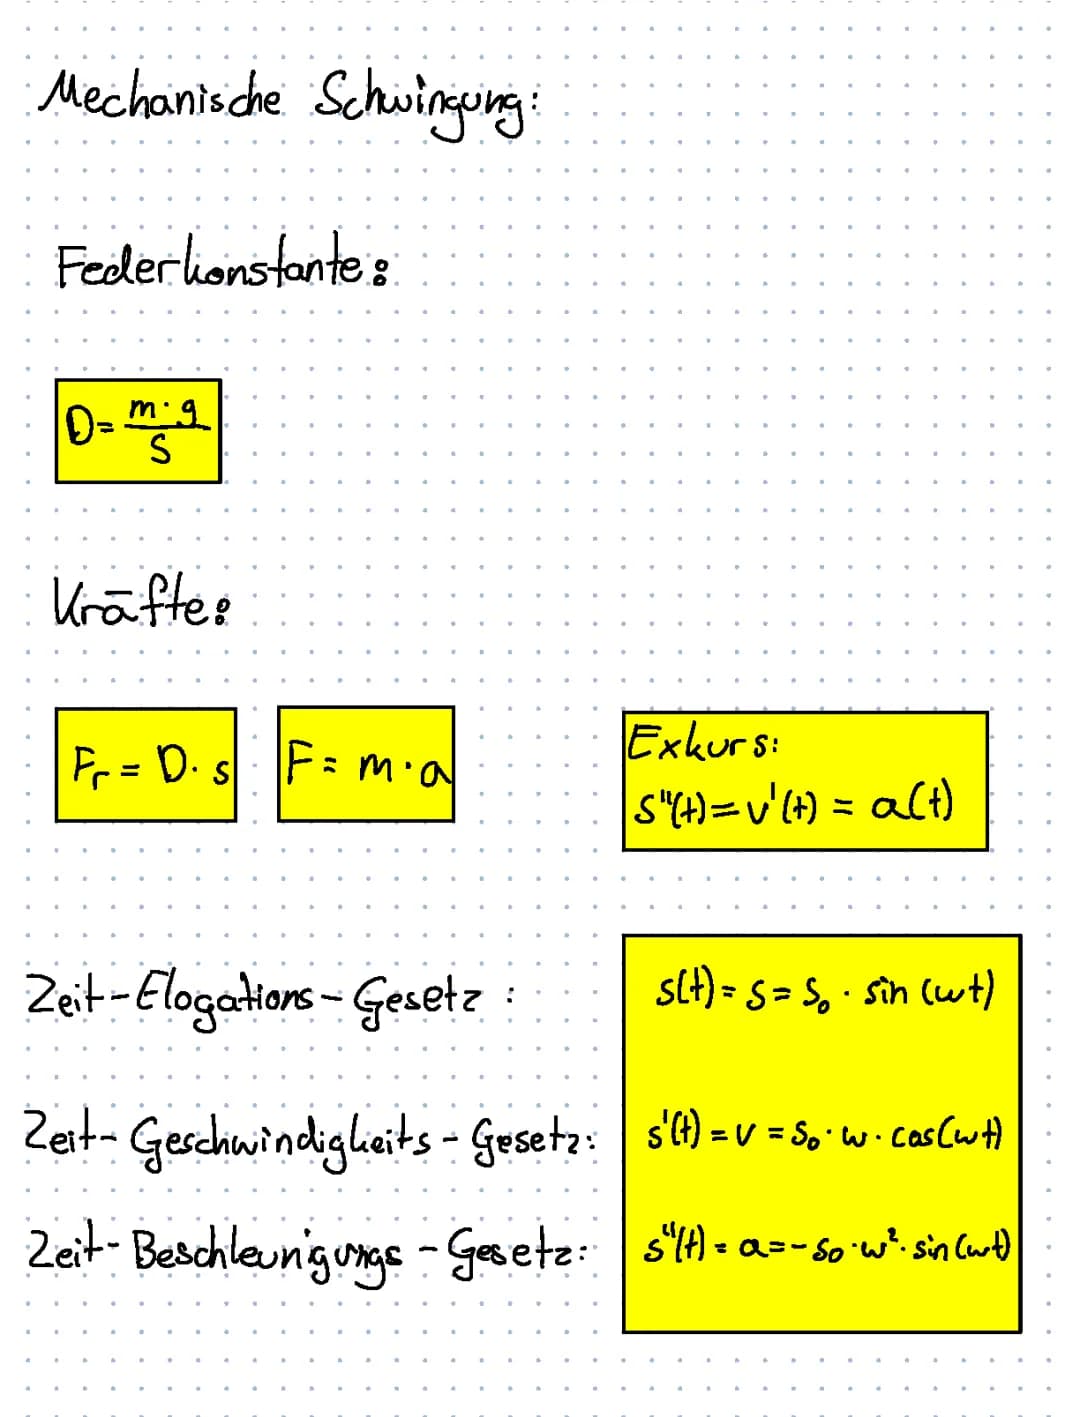 Mechanische Schwingung:
Federkonstante:
D = m · g / s
Kräfte:
Fr = D · s
F = m · a
Exkurs:
s''(t) = v'(t) = a(t)
Zeit-Elogations-Gesetz :
s(t) = s = s₀ · sin (ωt)
Zeit-Geschwindigkeits-Gesetz:
s'(t) = v = s₀ · ω · cos(ωt)
Zeit-Beschleunigungs-Gesetz:
s''(t) = a = - s₀ · ω² · sin(ωt)